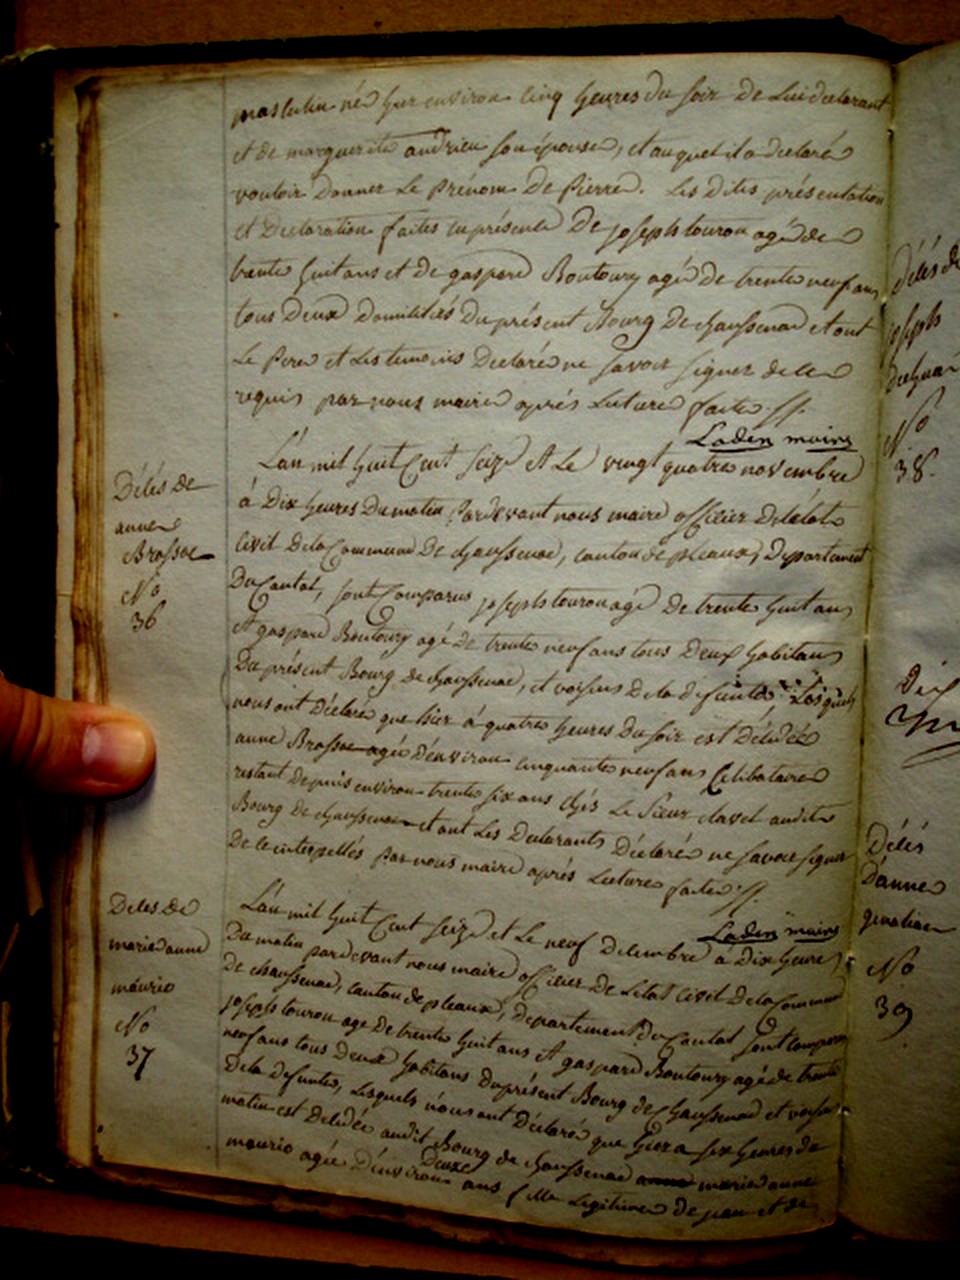 masculin né hier environ cinq heures du soir de lui declarant
et de marguerite andrieu son épouse, et auquel il a declaré
vouloir donner Le Prénom De Pierre. Les dites présentation
et Declaration faites en présence De joseph touron agé de
trente huit ans et de gaspard Boutoury agé De trente neuf ans
tous Deux Domiciliés Du présent Bourg De chaussenac et ont
Le Pere et Les temoins Declaré ne savoir signer de ce
requis par nous maire aprés Lecture faite.
Laden maire
Délés de
anne
Brossac
No
36
L'an mil huit Cent seize et Le vingt quatre novembre
à Dix heures Du matin Pardevant nous maire officier De l'état
civil De la Commune De chaussenac, canton de pleaux, Departement
Du Cantal, sont Comparus joseph touron agé De trente huit ans
et gaspard Boutoury agé De trente neuf ans tous Deux habitans
Du présent Bourg de chaussenac, et voisins De la defunte, Lesquels
nous ont Déclaré que hier à quatre heures Du soir est Décédée
anne Brossac agée D'environ cinquante neuf ans Celibataire
restant Depuis environ trente six ans chés Le Sieur clavet audit
Bourg de chaussenac et ont Les Declarants Déclaré ne savoir signer
De ce interpellés Par nous maire aprés Lecture faite
Laden maire
Deles de
marie anne
maurio
No
37
L'an mil huit Cent seize et Le neuf Decembre à Dix heures
Du matin pardevant nous maire officier De L'etat civil De la Commune
De chaussenac, canton de pleaux, departement Du Cantal sont comparus
joseph touron agé De trente huit ans et gaspard Boutoury agé de trente
neuf ans tous Deux habitans Du présent Bourg de chaussenac et voisins
De la defunte, Lesquels nous ont Déclaré que hier a six heures du
matin est Decédée audit Bourg de chaussenac marie anne
maurio agée D'environ Deux ans fille Legitime De jean et de
Délés de
joseph
No
38.
Délés
D'anne
No
39